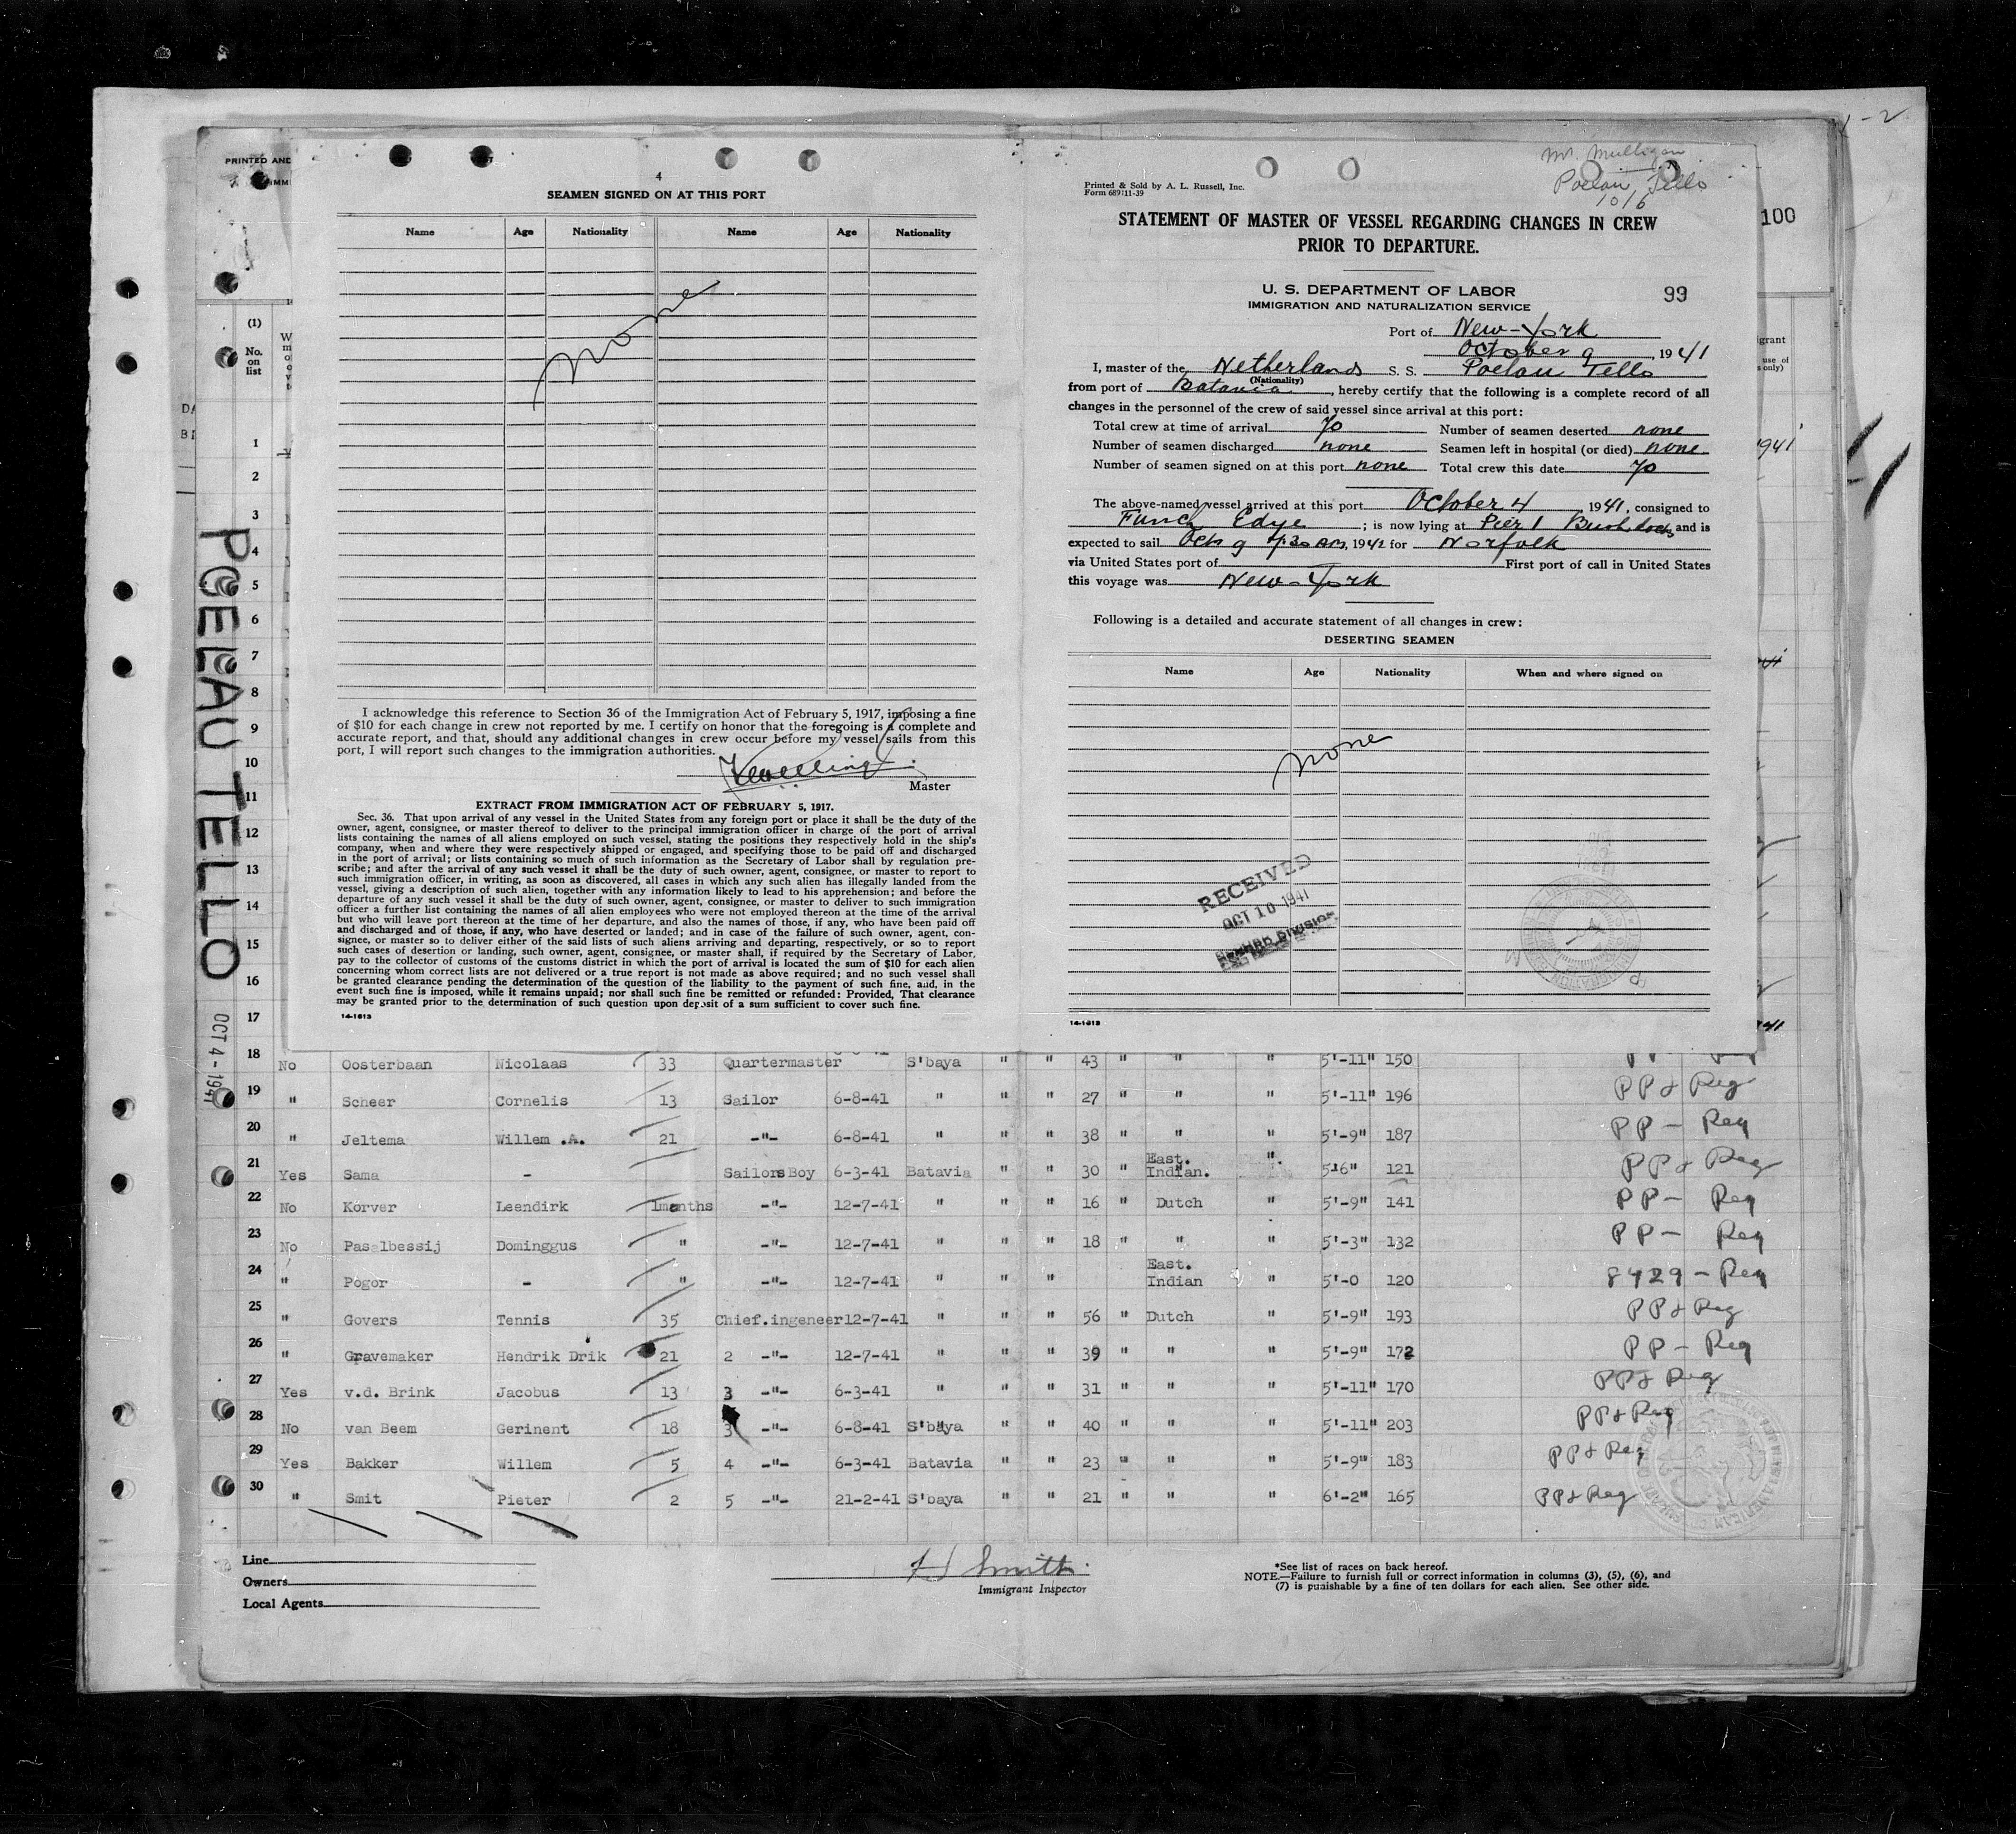 1-2
PRINTED AND
IMM
4
SEAMEN SIGNED ON AT THIS PORT
Name Age Nationality Name Age Nationality
none
I acknowledge this reference to Section 36 of the Immigration Act of February 5, 1917, imposing a fine
of $10 for each change in crew not reported by me. I certify on honor that the foregoing is a complete and
accurate report, and that, should any additional changes in crew occur before my vessel sails from this
port, I will report such changes to the immigration authorities.
Master
EXTRACT FROM IMMIGRATION ACT OF FEBRUARY 5, 1917.
Sec. 36. That upon arrival of any vessel in the United States from any foreign port or place it shall be the duty of the
owner, agent, consignee, or master thereof to deliver to the principal immigration officer in charge of the port of arrival
lists containing the names of all aliens employed on such vessel, stating the positions they respectively hold in the ship's
company, when and where they were respectively shipped or engaged, and specifying those to be paid off and discharged
in the port of arrival; or lists containing so much of such information as the Secretary of Labor shall by regulation pre-
scribe; and after the arrival of any such vessel it shall be the duty of such owner, agent, consignee, or master to report to
such immigration officer, in writing, as soon as discovered, all cases in which any such alien has illegally landed from the
vessel, giving a description of such alien, together with any information likely to lead to his apprehension; and before the
departure of any such vessel it shall be the duty of such owner, agent, consignee, or master to deliver to such immigration
officer a further list containing the names of all alien employees who were not employed thereon at the time of the arrival
but who will leave port thereon at the time of her departure, and also the names of those, if any, who have been paid off
and discharged and of those, if any, who have deserted or landed; and in case of the failure of such owner, agent, con-
signee, or master so to deliver either of the said lists of such aliens arriving and departing, respectively, or so to report
such cases of desertion or landing, such owner, agent, consignee, or master shall, if required by the Secretary of Labor,
pay to the collector of customs of the customs district in which the port of arrival is located the sum of $10 for each alien
concerning whom correct lists are not delivered or a true report is not made as above required; and no such vessel shall
be granted clearance pending the determination of the question of the liability to the payment of such fine, and, in the
event such fine is imposed, while it remains unpaid; nor shall such fine be remitted or refunded: Provided, That clearance
may be granted prior to the determination of such question upon deposit of a sum sufficient to cover such fine.
14-1613
Printed & Sold by A. L. Russell, Inc.
Form 689 11-39
Mr. Mulligan
Poelau Tello
10/6
STATEMENT OF MASTER OF VESSEL REGARDING CHANGES IN CREW
PRIOR TO DEPARTURE.
100
U. S. DEPARTMENT OF LABOR
IMMIGRATION AND NATURALIZATION SERVICE
99
Port of New-York
October 9, 1941
I, master of the Netherlands S. S. Poelau Tello
(Nationality)
from port of Batavia, hereby certify that the following is a complete record of all
changes in the personnel of the crew of said vessel since arrival at this port:
Total crew at time of arrival 70 Number of seamen deserted none
Number of seamen discharged none Seamen left in hospital (or died) none
Number of seamen signed on at this port none Total crew this date 70
The above-named vessel arrived at this port October 4, 1941, consigned to
Funch Edye; is now lying at Pier 1 Bush docks and is
expected to sail Oct 9 7.30 AM, 1941 for Norfolk
via United States port of First port of call in United States
this voyage was New-York
Following is a detailed and accurate statement of all changes in crew:
DESERTING SEAMEN
Name Age Nationality When and where signed on
none
RECEIVED
OCT 10 1941
DIVISION
14-1613
POELAU TELLO
OCT 4-1941
(1)
No.
on
list
1
2
3
4
5
6
7
8
9
10
11
12
13
14
15
16
17
18 No Oosterbaan Nicolaas 33 Quartermaster S'baya " " 43 " " " 5'-11" 150
19 " Scheer Cornelis 13 Sailor 6-8-41 " " " 27 " " " 5'-11" 196 PP & Reg
20 " Jeltema Willem .A. 21 -"- 6-8-41 " " " 38 " " " 5'-9" 187 PP - Reg
21 Yes Sama - Sailors Boy 6-3-41 Batavia " " 30 " East. Indian. " 5-6" 121 PP & Reg
22 No Korver Leendirk 1months -"- 12-7-41 " " " 16 " Dutch " 5'-9" 141 PP - Reg
23 No Pasalbessij Dominggus " -"- 12-7-41 " " " 18 " " " 5'-3" 132 PP - Reg
24 " Pogor - " -"- 12-7-41 " " " East. Indian " 5'-0 120 8429 - Reg
25 " Govers Tennis 35 Chief.ingeneer 12-7-41 " " " 56 " Dutch " 5'-9" 193 PP & Reg
26 " Gravemaker Hendrik Drik 21 2 -"- 12-7-41 " " " 39 " " " 5'-9" 172 PP - Reg
27 Yes v.d. Brink Jacobus 13 3 -"- 6-3-41 " " " 31 " " " 5'-11" 170 PP & Reg
28 No van Beem Gerinent 18 3 -"- 6-8-41 S'baya " " 40 " " " 5'-11" 203 PP & Reg
29 Yes Bakker Willem 5 4 -"- 6-3-41 Batavia " " 23 " " " 5'-9" 183 PP & Reg
30 " Smit Pieter 2 5 -"- 21-2-41 S'baya " " 21 " " " 6'-2" 165 PP & Reg
Line
Owners
Local Agents
H Smith
Immigrant Inspector
*See list of races on back hereof.
NOTE.—Failure to furnish full or correct information in columns (3), (5), (6), and
(7) is punishable by a fine of ten dollars for each alien. See other side.